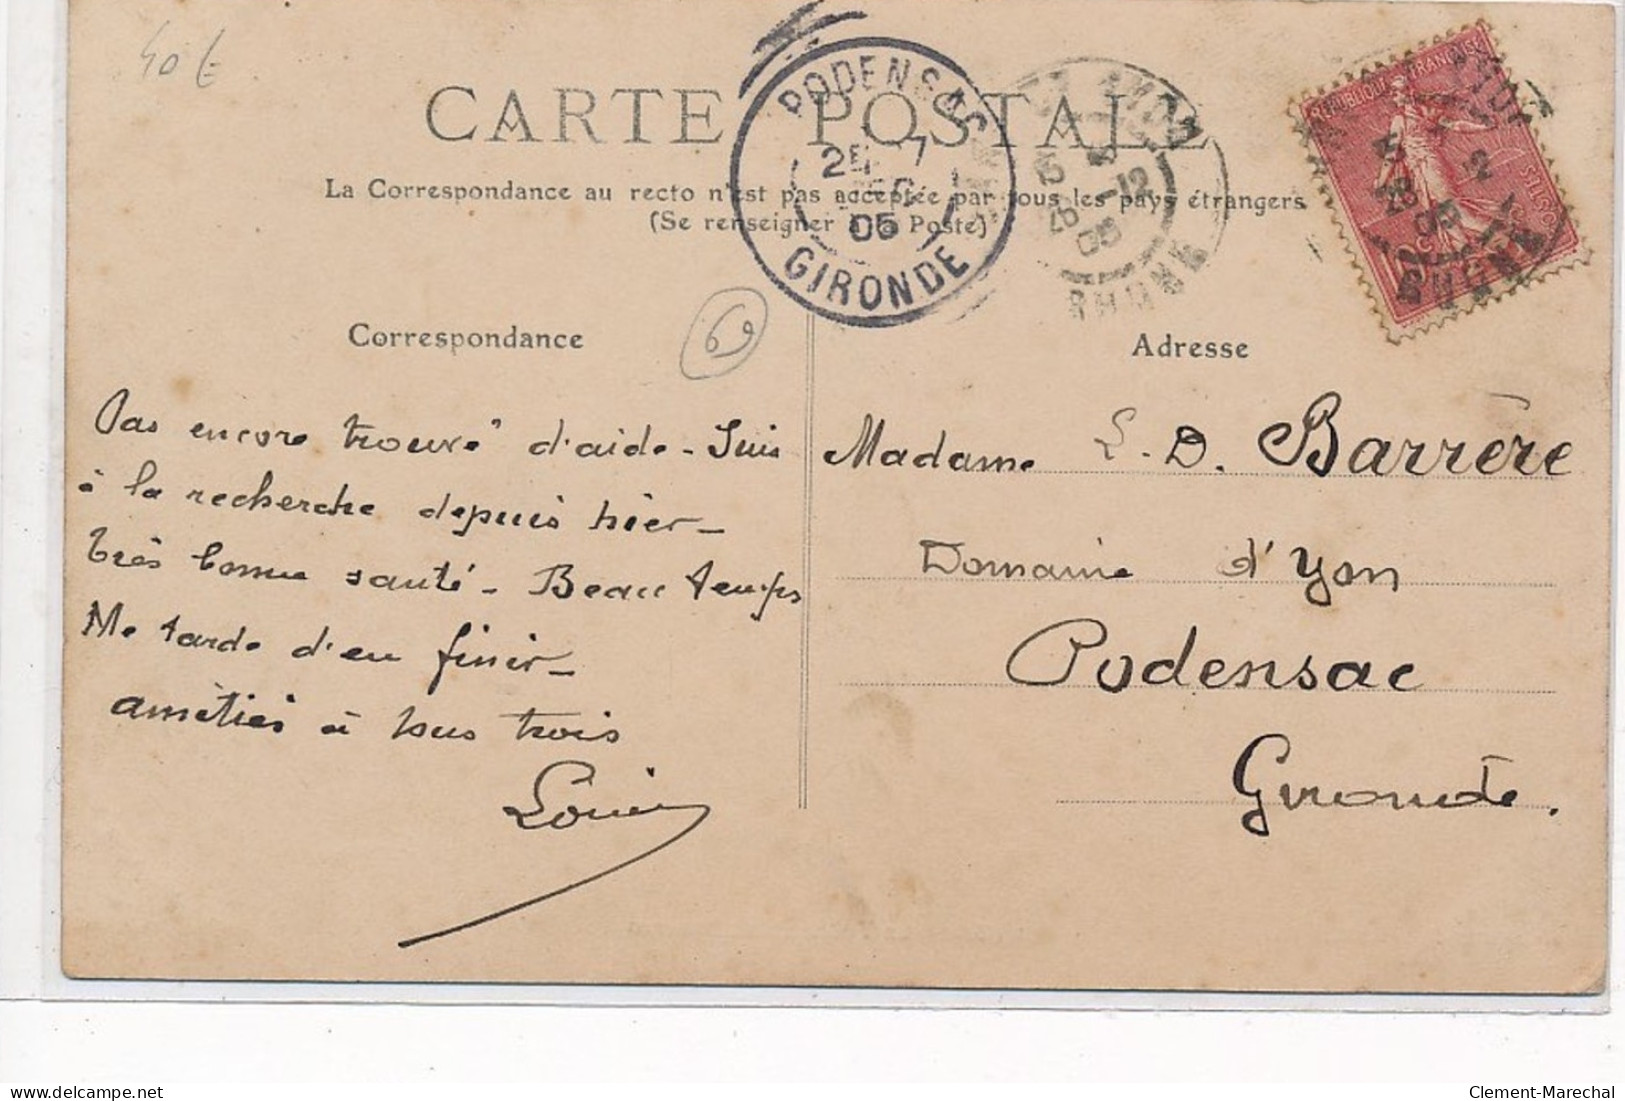 40 €
CARTE POSTALE
La Correspondance au recto n'est pas acceptée par tous les pays étrangers
(Se renseigner à la Poste)
PODENSAC
2E 7
05
GIRONDE
15
26 -12
05
RHONE
REPUBLIQUE FRANÇAISE
POSTES
15
26 12
05
RHONE
Correspondance
69
Adresse
Pas encore trouvé d'aide - Suis
à la recherche depuis hier -
très bonne santé - Beau temps
Me tarde d'en finir -
amitiés à tous trois
Louis
Madame L. D. Barrère
Domaine d'Yon
Podensac
Gironde.
delcampe.net
Clement-Marechal